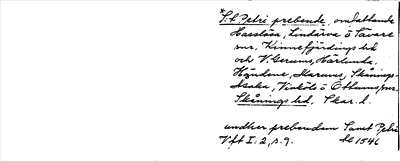 *S:t Petri prebende, omfattande
Hasslösa, Lindärva o Tåvare
snr, Kinnefjärdings hd
och V. Gerums, Härlunda,
Händene, Marums, Skånings-
Åsaka, Vinköls o Ottums snr,
Skånings hd, Skar. l.
undher prebendan Sanct Petri
Vft I:2, s. 9. ht 1546